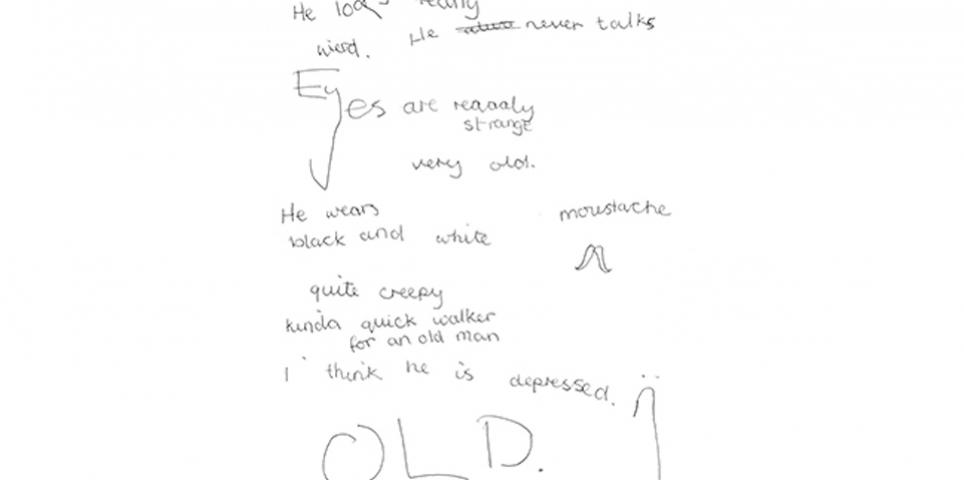 He looks really
wierd. He never talks
Eyes are reaaaly
strange
very old.
He wears
black and white
moustache
quite creepy
kinda quick walker
for an old man
I think he is depressed.
OLD.